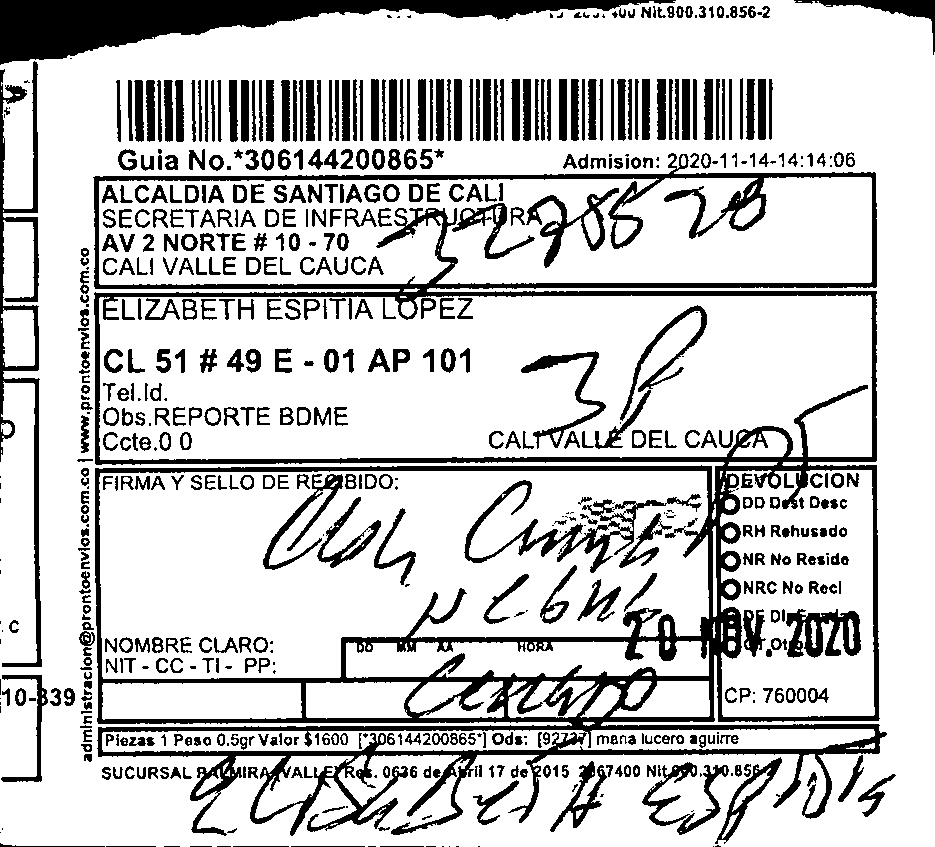 400 Nit.900.310.856-2
Guia No.*306144200865*
Admision: 2020-11-14-14:14:06
ALCALDIA DE SANTIAGO DE CALI
SECRETARIA DE INFRAESTRUCTURA
AV 2 NORTE # 10 - 70
CALI VALLE DEL CAUCA
ELIZABETH ESPITIA LOPEZ
CL 51 # 49 E - 01 AP 101
Tel.Id.
Obs.REPORTE BDME
Ccte.0 0
CALI VALLE DEL CAUCA
3P
administracion@prontoenvios.com.co | www.prontoenvios.com.co
FIRMA Y SELLO DE RECIBIDO:
DEVOLUCION
DD Dest Desc
RH Rehusado
NR No Reside
NRC No Recl
20 NOV. 2020
NOMBRE CLARO:
NIT - CC - TI - PP:
DD MM AA HORA
CP: 760004
10-339
C
Piezas 1 Peso 0.5gr Valor $1600 [*306144200865*] Ods: [92737] maria lucero aguirre
SUCURSAL PALMIRA (VALLE) Res. 0636 de Abril 17 de 2015 2667400 Nit.900.310.856-2
Elisabeth Espitia